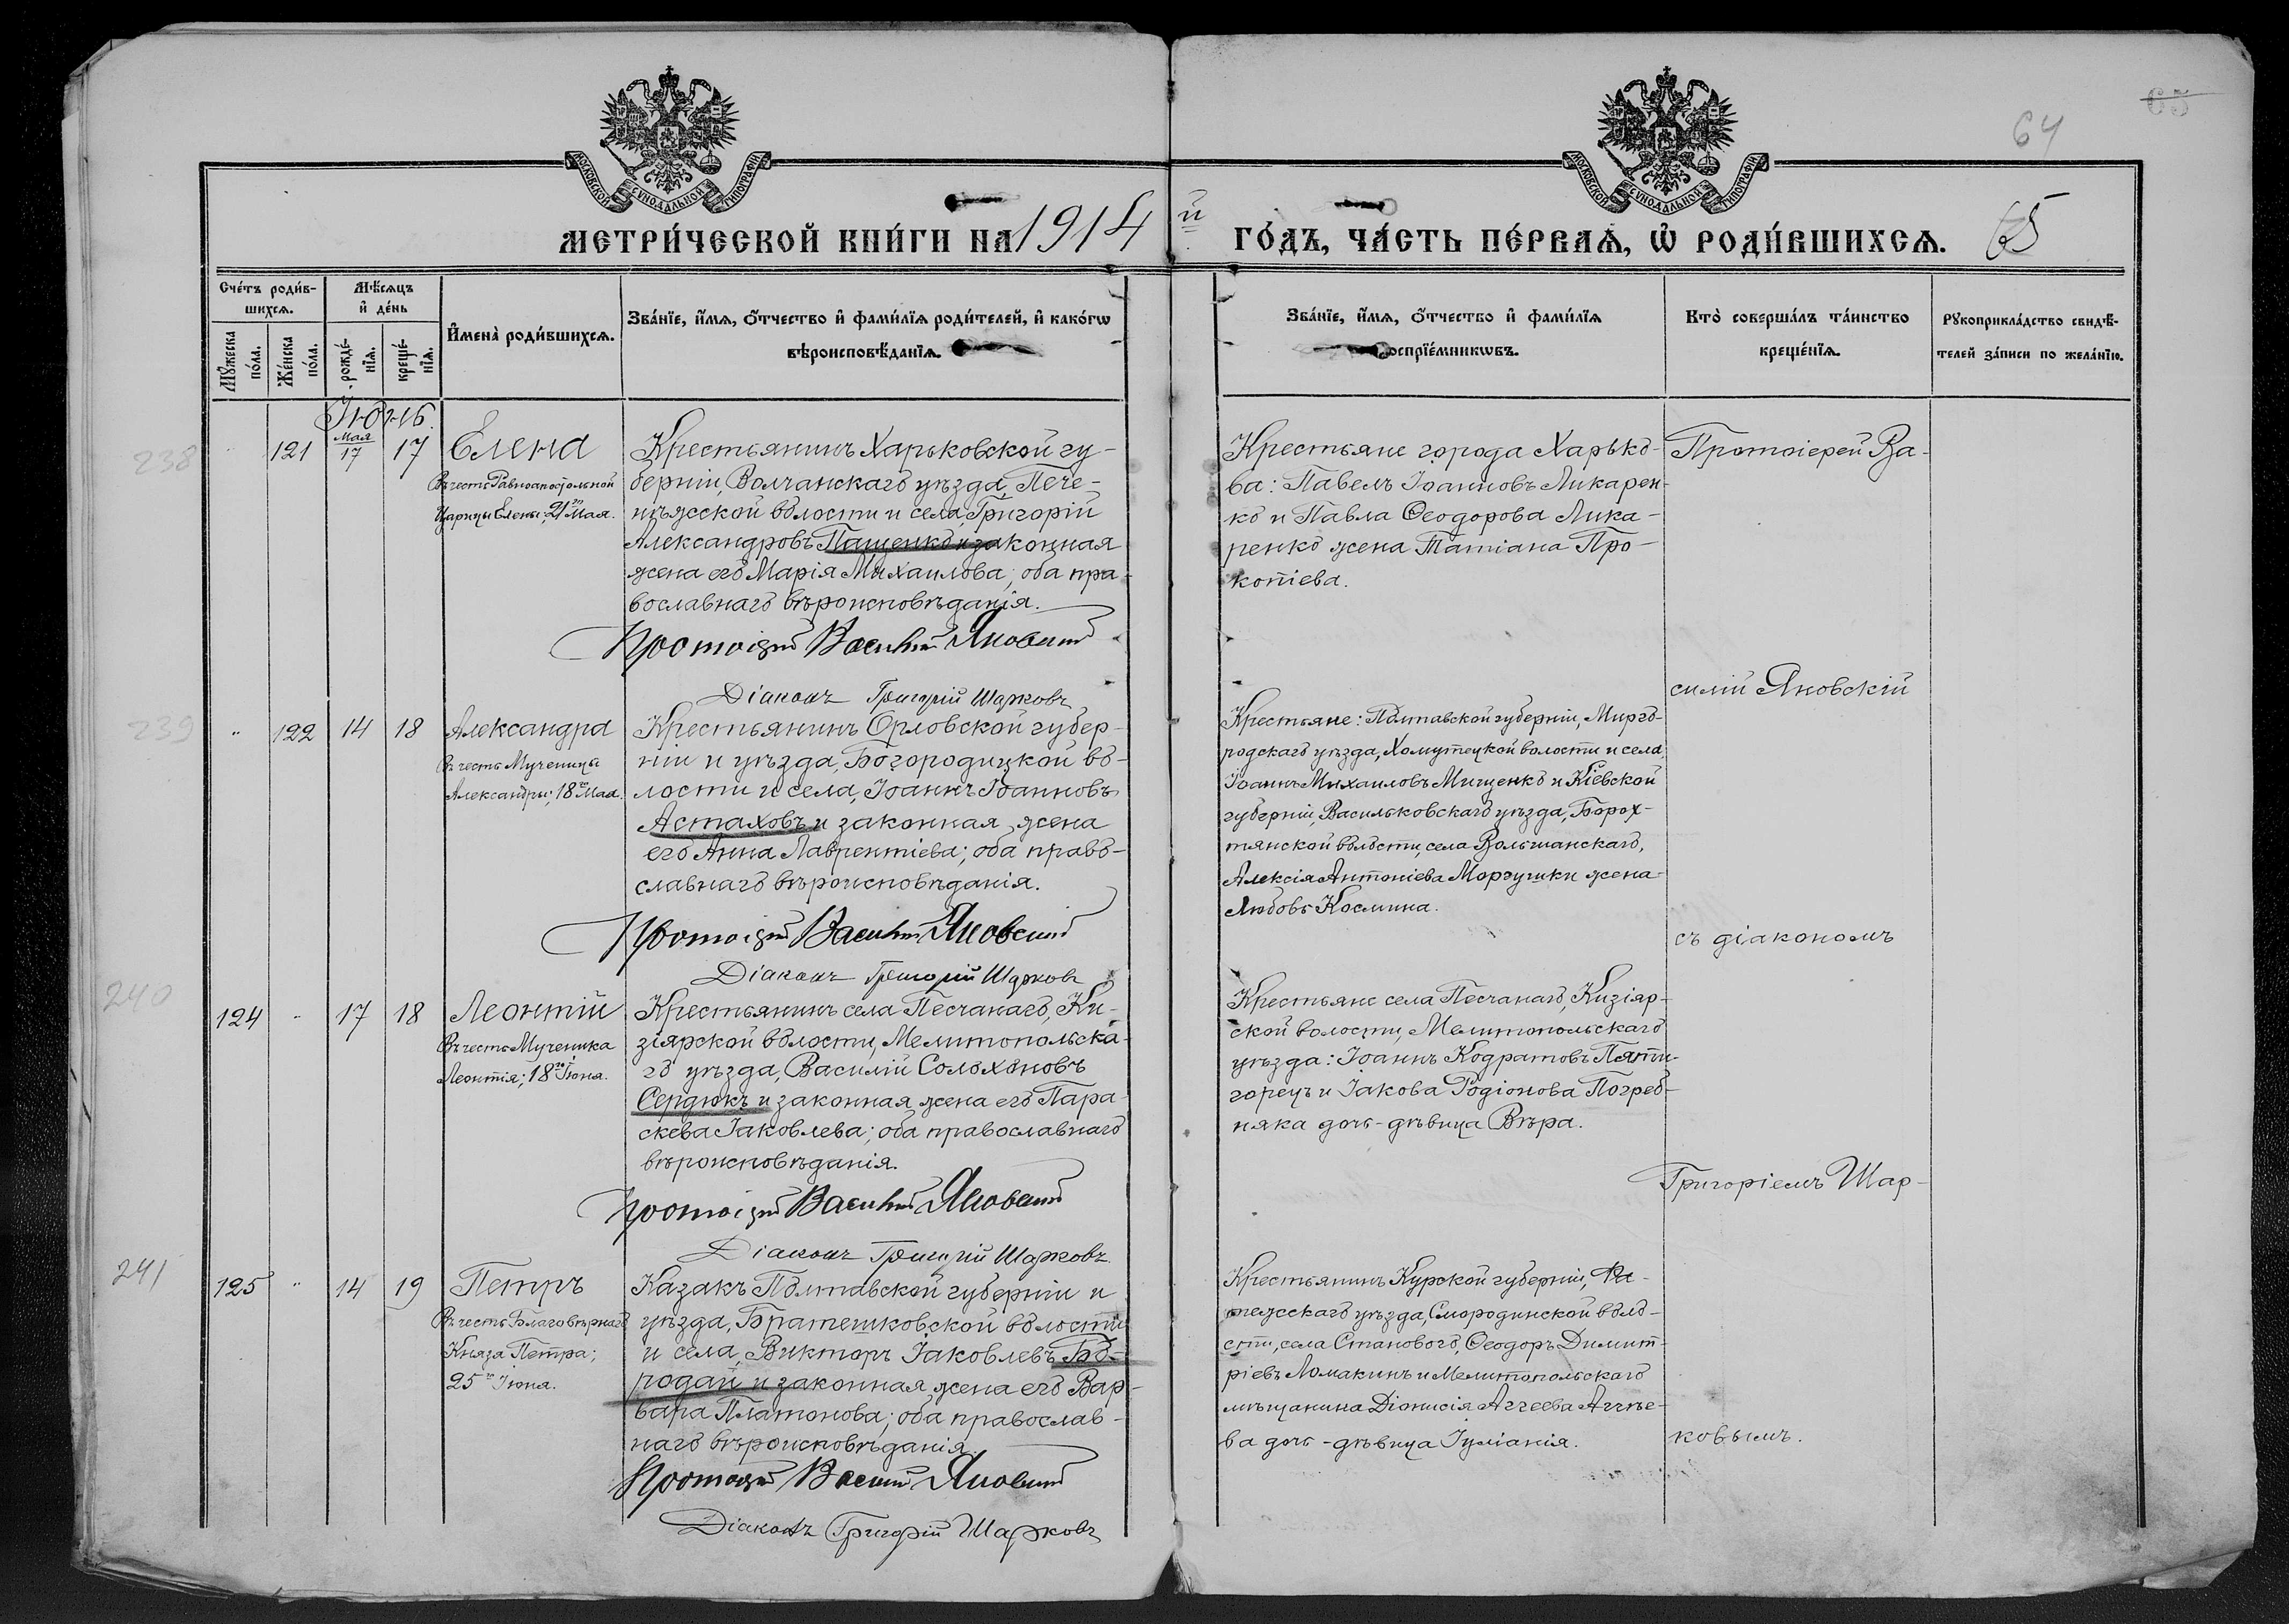 МОСКОВСКОЙ СѴНОДАЛЬНОЙ ТИПОГРАФІИ
МОСКОВСКОЙ СѴНОДАЛЬНОЙ ТИПОГРАФІИ
65
64
МЕТРИ́ЧЕСКОЙ КНИ́ГИ НА 1914 й ГО́ДЪ, ЧА́СТЬ ПЕ́РВАѦ, Ѡ РОДИ́ВШИХСѦ.
65
Сче́тъ роди́в-
шихсѧ.
Мѣ́сѧцъ
и҆ де́нь
Мꙋ́жеска
по́ла.
Же́нска
по́ла.
рожде́-
нїѧ.
креще́-
нїѧ.
И҆мена̀ роди́вшихсѧ.
Зва́нїе, и҆́мѧ, ѻ҆́тчество и҆ фами́лїѧ роди́телей, и҆ како́гѡ
вѣроисповѣ́данїѧ.
Зва́нїе, и҆́мѧ, ѻ҆́тчество и҆ фами́лїѧ
воспрїе́мникѡвъ.
Кто̀ соверша́лъ та́инство
креще́нїѧ.
Рꙋкоприкла́дство свидѣ́-
телей за́писи по жела́нїю.
Іюнь.
238
121
Мая
17
17
Елена
Въ честь Равноапостольной
Царицы Елены; 21го Мая.
Крестьянинъ Харьковской гу-
берніи, Волчанскаго уѣзда, Пече-
нѣжской волости и села, Григорій
Александровъ Пащенко и законная
жена его Марія Михаилова; оба пра-
вославнаго вѣроисповѣданія.
Протоіерей Василій Яновскій
Діаконъ Григорій Шарковъ
Крестьяне города Харько-
ва: Павелъ Іоанновъ Ликарен-
ко и Павла Ѳеодорова Лика-
ренко жена Татіана Про-
копіева.
Протоіерей Ва-
силій Яновскій
239
"
122
14
18
Александра
Въ честь Мученицы
Александры; 18го Мая.
Крестьянинъ Орловской губер-
ніи и уѣзда, Богородицкой во-
лости и села, Іоаннъ Іоанновъ
Астаховъ и законная жена
его Анна Лаврентіева; оба право-
славнаго вѣроисповѣданія.
Протоіерей Василій Яновскій
Діаконъ Григорій Шарковъ
Крестьяне: Полтавской губерніи, Мирго-
родскаго уѣзда, Хомутецкой волости и села,
Іоаннъ Михаиловъ Мищенко и Кіевской
губерніи, Васильковскаго уѣзда, Борох-
тянской волости, села Вольшанскаго,
Алексія Антоніева Моргушки жена
Любовь Космина.
съ діакономъ
240
124
"
17
18
Леонтій
Въ честь Мученика
Леонтія; 18го Іюня.
Крестьянинъ села Песчанаго, Ки-
зіярской волости, Мелитопольска-
го уѣзда, Василій Солохоновъ
Сердюкъ и законная жена его Пара-
скева Іаковлева; оба православнаго
вѣроисповѣданія.
Протоіерей Василій Яновскій
Діаконъ Григорій Шарковъ
Крестьяне села Песчанаго, Кизіяр-
ской волости, Мелитопольскаго
уѣзда: Іоаннъ Кодратовъ Пяти-
горецъ и Іакова Родіонова Погреб-
няка дочь-дѣвица Вѣра.
Григоріемъ Шар-
241
125
"
14
19
Петръ
Въ честь Благовѣрнаго
Князя Петра;
25го Іюня.
Казакъ Полтавской губерніи и
уѣзда, Братешковской волости
и села, Викторъ Іаковлевъ Бо-
родай и законная жена его Вар-
вара Платонова; оба православ-
наго вѣроисповѣданія.
Протоіерей Василій Яновскій
Діаконъ Григорій Шарковъ
Крестьянинъ Курской губерніи, Фа-
тежскаго уѣзда, Смородинской воло-
сти, села Станового, Ѳеодоръ Димит-
ріевъ Ломакинъ и Мелитопольскаго
мѣщанина Діонисія Аггеева Аггѣе-
ва дочь-дѣвица Іуліанія.
ковымъ.